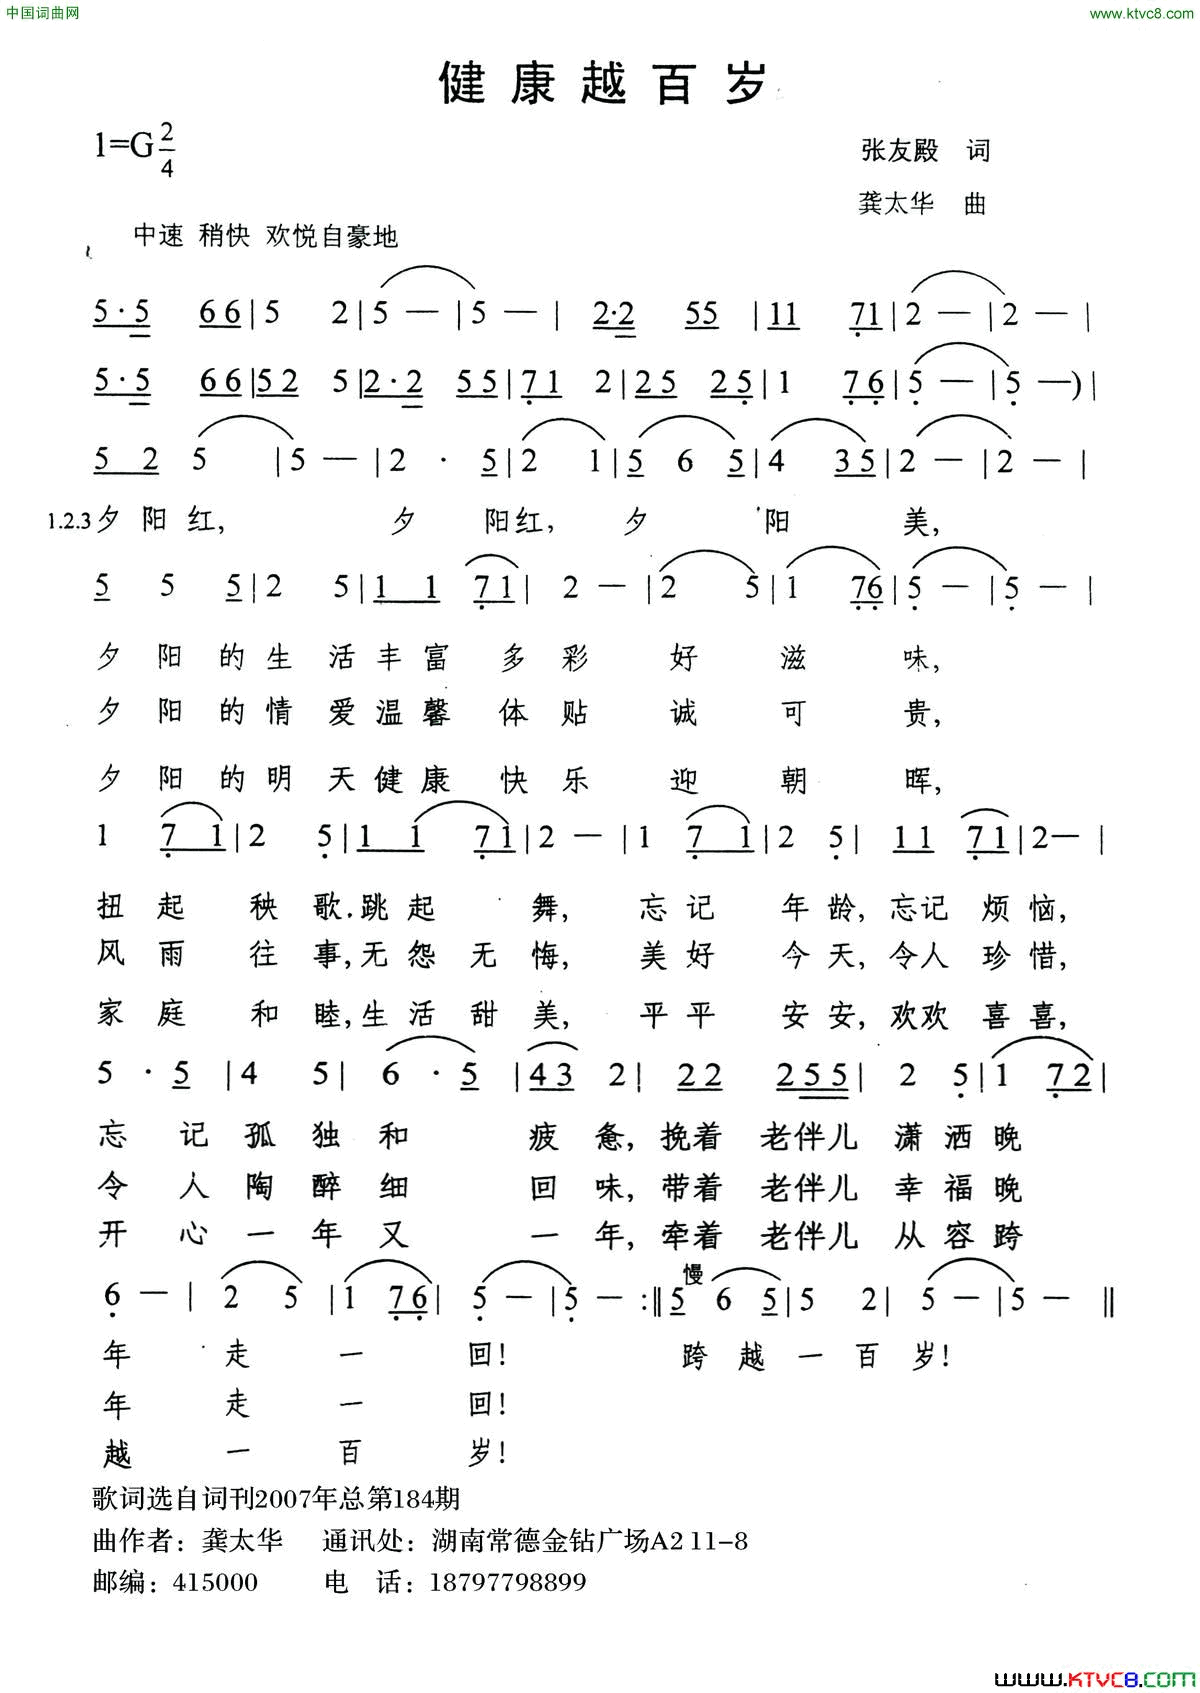 中国词曲网
www.ktvc8.com
健康越百岁
1=G 2/4
张友殿 词
龚太华 曲
中速 稍快 欢悦自豪地
5·5 66|5 2|5 —|5 —| 2·2 55|11 71|2 —|2 —|
5·5 66|52 5|2·2 55|71 2|25 25|1 76|5 —|5 —)|
5 2 5 |5 —|2 · 5|2 1|5 6 5|4 35|2 —|2 —|
1.2.3 夕阳红, 夕 阳红, 夕 阳 美,
5 5 5|2 5|1 1 71|2 —|2 5|1 76|5 —|5 —|
夕 阳 的 生 活 丰 富 多 彩 好 滋 味,
夕 阳 的 情 爱 温 馨 体 贴 诚 可 贵,
夕 阳 的 明 天 健 康 快 乐 迎 朝 晖,
1 7 1|2 5|1 1 71|2 —|1 7 1|2 5| 11 71|2—|
扭 起 秧 歌.跳 起 舞, 忘 记 年 龄, 忘记 烦 恼,
风 雨 往 事,无 怨 无 悔, 美 好 今 天,令人 珍 惜,
家 庭 和 睦,生 活 甜 美, 平 平 安 安,欢欢 喜 喜,
5 · 5 |4 5| 6 · 5 |43 2| 22 255| 2 5|1 72|
忘 记 孤 独 和 疲 惫, 挽着 老伴儿 潇 洒 晚
令 人 陶 醉 细 回 味, 带着 老伴儿 幸 福 晚
开 心 一 年 又 一 年, 牵着 老伴儿 从 容 跨
慢
6 —| 2 5 |1 76| 5 —|5 — :‖5 6 5|5 2| 5 —|5 — ‖
年 走 一 回! 跨 越 一 百 岁!
年 走 一 回!
越 一 百 岁!
歌词选自词刊2007年总第184期
曲作者：龚太华 通讯处：湖南常德金钻广场A2 11-8
邮编：415000 电 话：18797798899
www.KTVC8.com